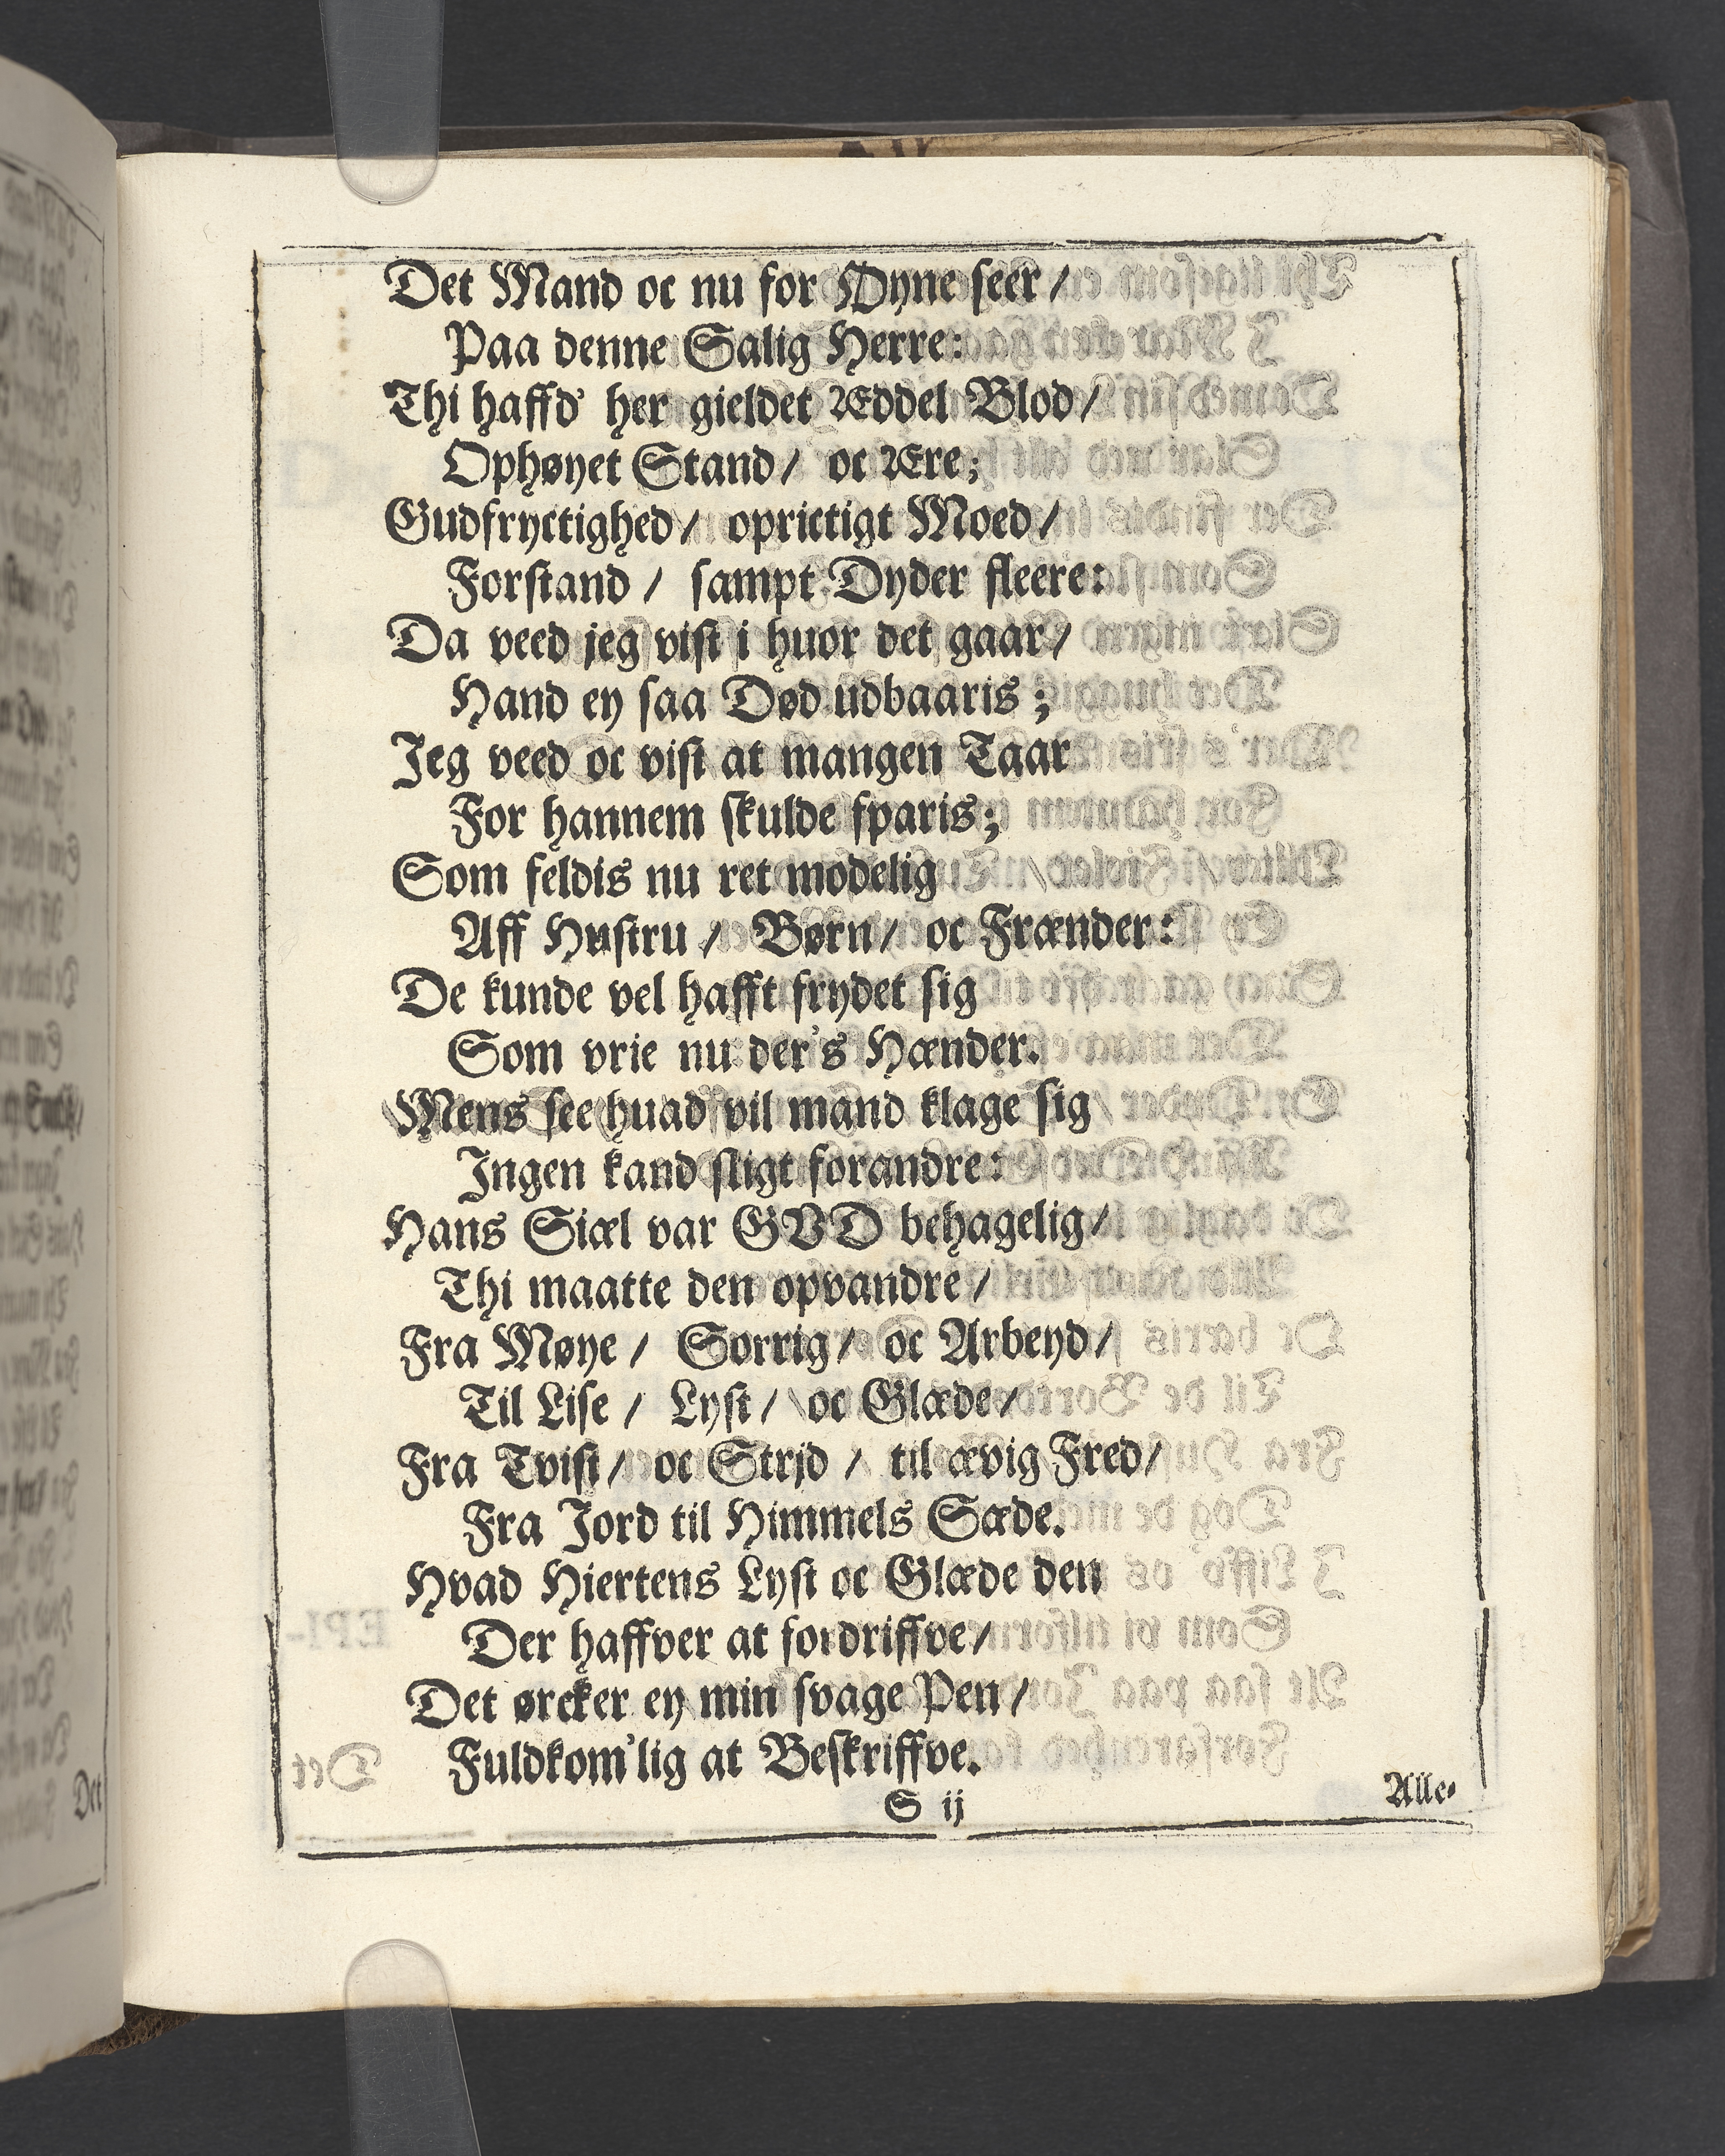 Det Mand oc nu for Øyne seer /
Paa denne Salig Herre:
Thi haffd' her gieldet Æddel Blod /
Ophøyet Stand / oc Ære;
Gudfryctighed / oprictigt Moed /
Forstand / sampt Dyder fleere:
Da veed jeg vist i huor det gaar /
Hand ey saa Død udbaaris ;
Jeg veed oc vist at mangen Taar
For hannem skulde sparis;
Som feldis nu ret modelig
Aff Hustru / Børn / oc Frænder:
De kunde vel hafft frydet sig
Som vrie nu der's Hænder.
Mens see huad vil mand klage sig
Ingen kand sligt forandre:
Hans Siæl var GVD behagelig /
Thi maatte den opvandre /
Fra Møye / Sorrig / oc Arbeyd /
Til Lise / Lyst / oc Glæde /
Fra Tvist / oc Strjd / til ævig Fred /
Fra Jord til Himmels Sæde.
Hvad Hiertens Lyst oc Glæde den
Der haffver at fordriffve /
Det ørcker ey min svage Pen /
Fuldkom'lig at Beskriffve.
S ij
Alle-
Det